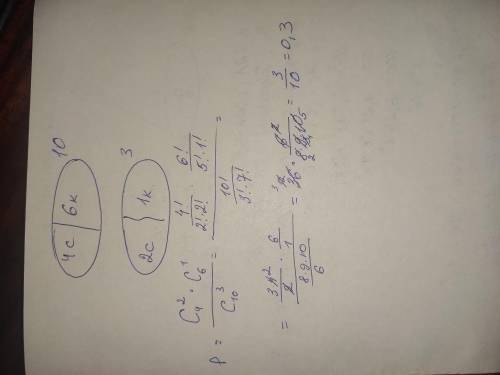 10
4с | 6к
3
2с } 1к
P = (C₄² · C₆¹) / C₁₀³ = (4!/(2!·2!) · 6!/(5!·1!)) / (10!/(3!·7!)) =
= (3·4²/2 · 6/1) / (8·9·10/6) = 36 · 6/(8·9·10) = 3/10 = 0,3